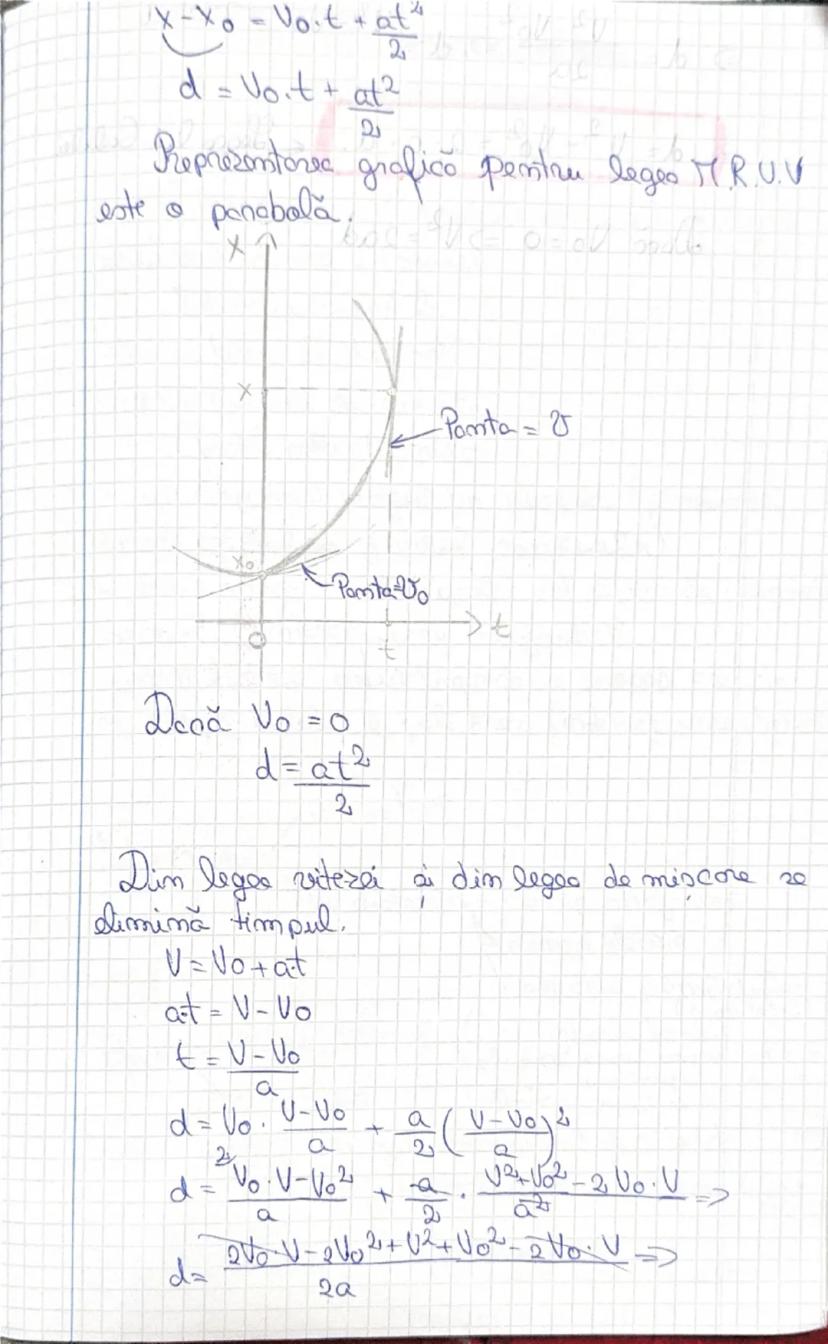 x-x₀ = V₀.t + at²/2
d = V₀.t + at²/2
Reprezentarea grafică pentru legea M.R.U.V
este o parabolă.
x
x
Panta = v
x₀
Panta=v₀
O
t
t
Dacă V₀ = 0
d = at²/2
Din legea vitezei și din legea de mișcare se
elimină timpul.
V = V₀ + a.t
a.t = V - V₀
t = V - V₀/a
d = V₀ . V-V₀/a + a/2 (V-V₀/a)²
d = ²⁾V₀.V-V₀²/a + a/2 . V²+V₀²-2V₀.V/a² =>
d = 2V₀.V-2V₀²+V²+V₀²-2V₀.V/2a =>